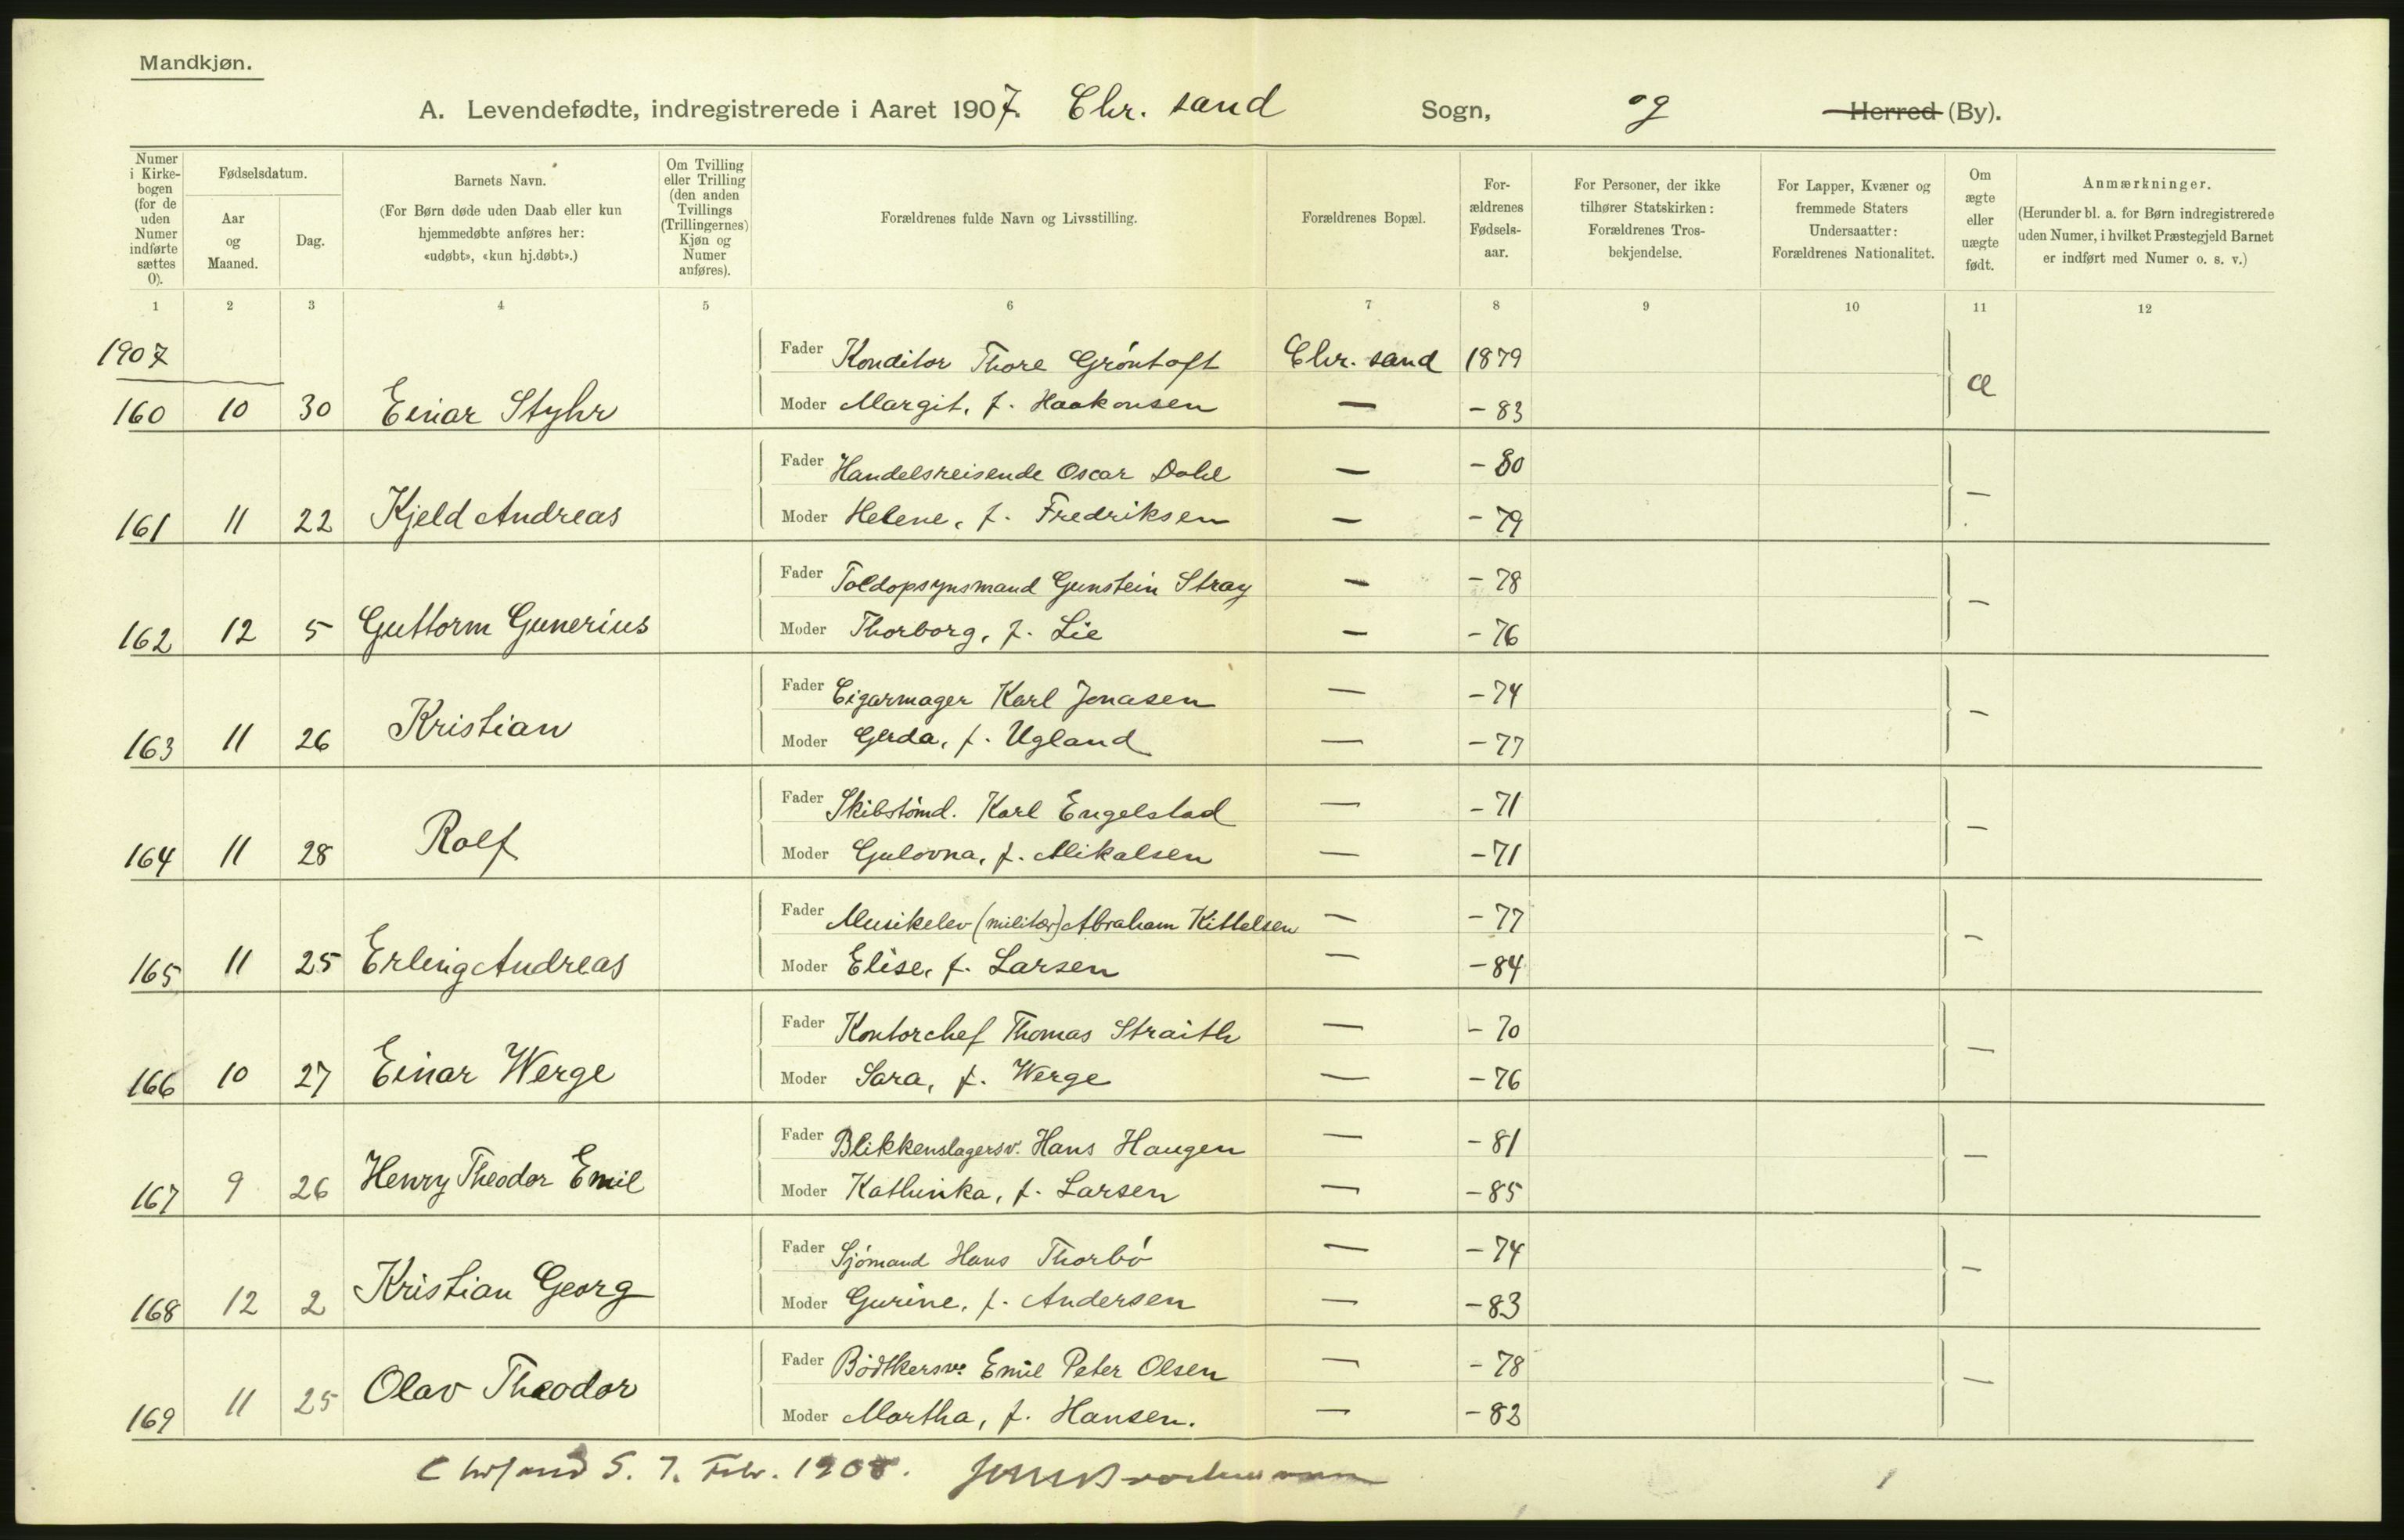 Mandkjøn.
A. Levendefødte, indregistrerede i Aaret 1907. Chr. sand Sogn, og Herred (By).
Numer i Kirkebogen (for de uden Numer indførte sættes 0).
Fødselsdatum.
Aar og Maaned.
Dag.
Barnets Navn.
(For Børn døde uden Daab eller kun hjemmedøbte anføres her: «udøbt», «kun hj.døbt».)
Om Tvilling eller Trilling (den anden Tvillings (Trillingernes) Kjøn og Numer anføres).
Forældrenes fulde Navn og Livsstilling.
Forældrenes Bopæl.
For-ældrenes Fødsels-aar.
For Personer, der ikke tilhører Statskirken: Forældrenes Tros-bekjendelse.
For Lapper, Kvæner og fremmede Staters Undersaatter: Forældrenes Nationalitet.
Om ægte eller uægte født.
Anmærkninger.
(Herunder bl. a. for Børn indregistrerede uden Numer, i hvilket Præstegjeld Barnet er indført med Numer o. s. v.)
1 2 3 4 5 6 7 8 9 10 11 12
1907
Fader Konditor Thore Grøntoft Chr. sand 1879
160 10 30 Einar Styhr Moder Margit, f. Haakonsen — - 83 æ
Fader Handelsreisende Oscar Dahl — - 80
161 11 22 Kjeld Andreas Moder Helene, f. Fredriksen — - 79 —
Fader Toldopsynsmand Gunstein Stray — - 78
162 12 5 Guttorm Gunerius Moder Thorborg, f. Lie — - 76 —
Fader Cigarmager Karl Jonasen — - 74
163 11 26 Kristian Moder Gerda, f. Ugland — - 77 —
Fader Skibstømd. Karl Engelstad — - 71
164 11 28 Rolf Moder Gulovna, f. Mikalsen — - 71 —
Fader Musikelev (militær) Abraham Kittelsen — - 77
165 11 25 Erling Andreas Moder Elise, f. Larsen — - 84 —
Fader Kontorchef Thomas Straith — - 70
166 10 27 Einar Werge Moder Sara, f. Werge — - 76 —
Fader Blikkenslagersv. Hans Haugen — - 81
167 9 26 Henry Theodor Emil Moder Kathinka, f. Larsen — - 85 —
Fader Sjømand Hans Thorbø — - 74
168 12 2 Kristian Georg Moder Gurine, f. Andersen — - 83 —
Fader Bødtkersv. Emil Peter Olsen — - 78
169 11 25 Olav Theodor Moder Martha, f. Hansen. — - 82 —
Chrsand S. 7. Febr. 1908.